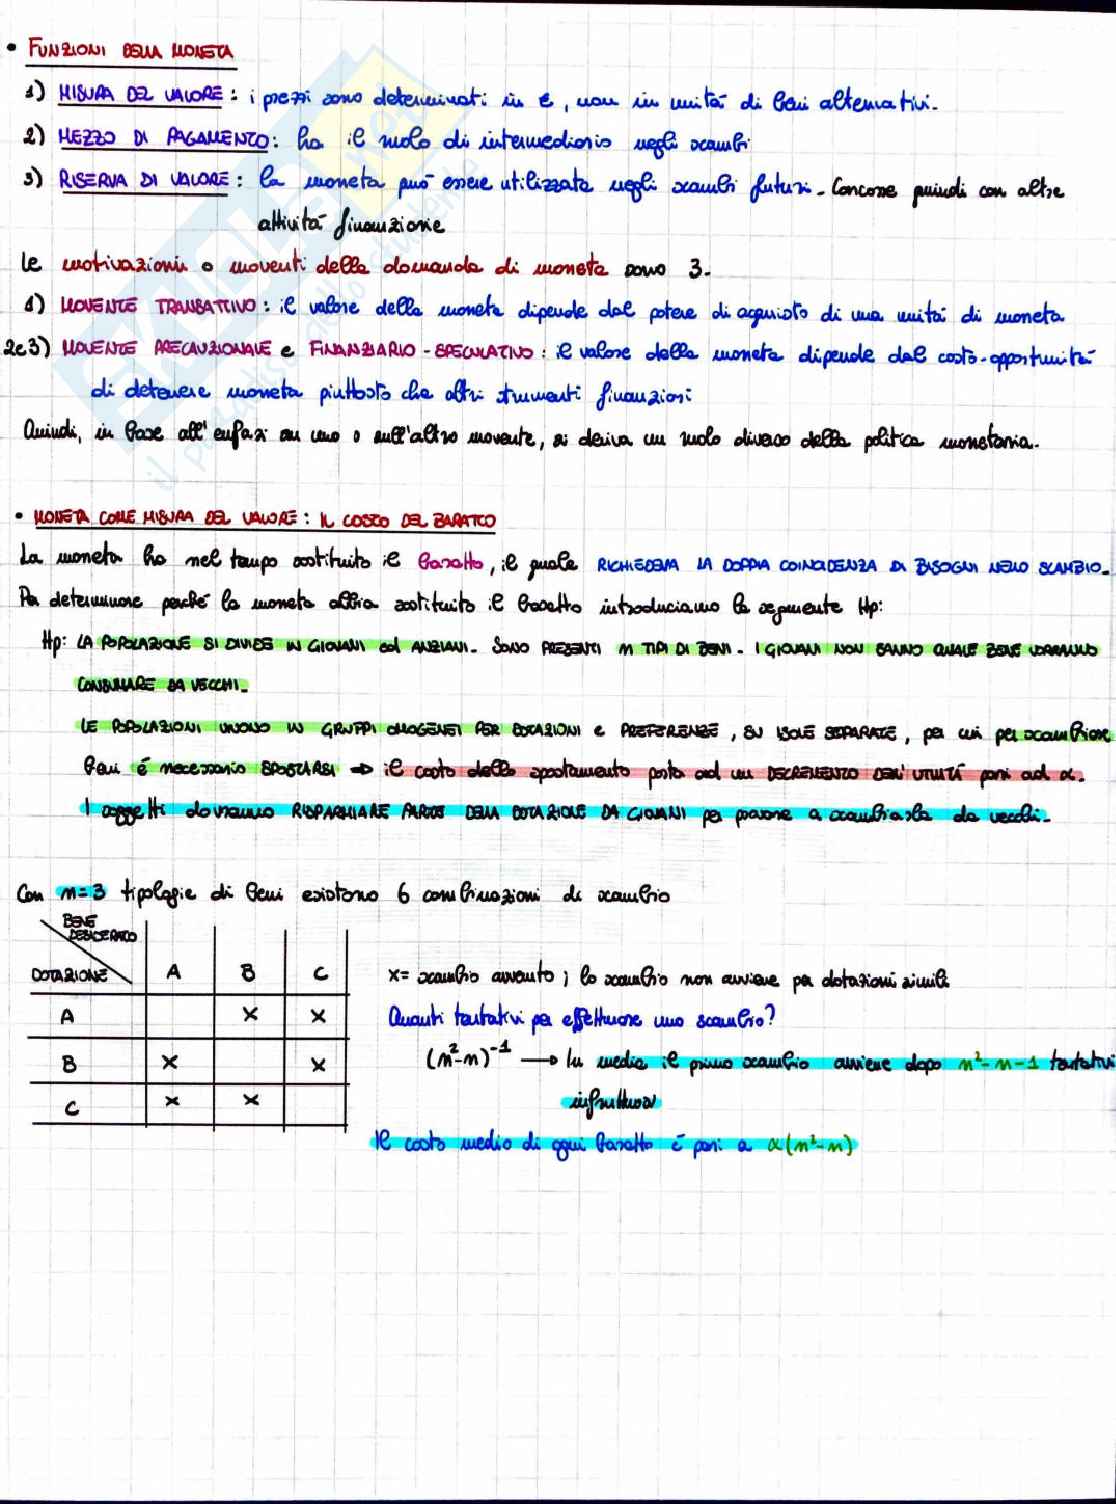 • FUNZIONI DELLA MONETA
1) MISURA DEL VALORE: i prezzi sono determinati in €, non in unità di beni alternativi.
2) MEZZO DI PAGAMENTO: ha il ruolo di intermediario negli scambi
3) RISERVA DI VALORE: la moneta può essere utilizzata negli scambi futuri. Concorre quindi con altre
attività finanziarie
Le motivazioni o moventi della domanda di moneta sono 3.
1) MOVENTE TRANSATTIVO: il valore della moneta dipende dal potere di acquisto di una unità di moneta
2e3) MOVENTE PRECAUZIONALE e FINANZIARIO-SPECULATIVO: il valore della moneta dipende dal costo-opportunità
di detenere moneta piuttosto che altri strumenti finanziari
Quindi, in base all'enfasi su uno o sull'altro movente, si deriva un ruolo diverso della politica monetaria.
• MONETA COME MISURA DEL VALORE: IL COSTO DEL BARATTO
La moneta ha nel tempo sostituito il baratto, il quale RICHIEDEVA LA DOPPIA COINCIDENZA DI BISOGNI NELLO SCAMBIO.
Per determinare perché la moneta abbia sostituito il baratto introduciamo le seguente Hp:
Hp: LA POPOLAZIONE SI DIVIDE IN GIOVANI ed ANZIANI. SONO PRESENTI M TIPI DI BENI. I GIOVANI NON SANNO QUALE BENE VORRANNO
CONSUMARE DA VECCHI.
LE POPOLAZIONI VIVONO IN GRUPPI OMOGENEI PER DOTAZIONI e PREFERENZE, SU ISOLE SEPARATE, per cui per scambiare
beni é necessario SPOSTARSI ⇒ il costo dello spostamento porta ad un DECREMENTO DELL'UTILITÁ pari ad α.
I soggetti dovranno RISPARMIARE PARTE DELLA DOTAZIONE DA GIOVANI per provare a scambiarla da vecchi.
Con n=3 tipologie di beni esistono 6 combinazioni di scambio
BENE
DESIDERATO
DOTAZIONE A B C
A x x
B x x
C x x
x= scambio avvenuto; lo scambio non avviene per dotazioni simili
Quanti tentativi per effettuare uno scambio?
(n²-n)⁻¹ → In media il primo scambio avviene dopo n²-n-1 tentativi
infruttuosi
Il costo medio di ogni baratto é pari a α(n²-n)